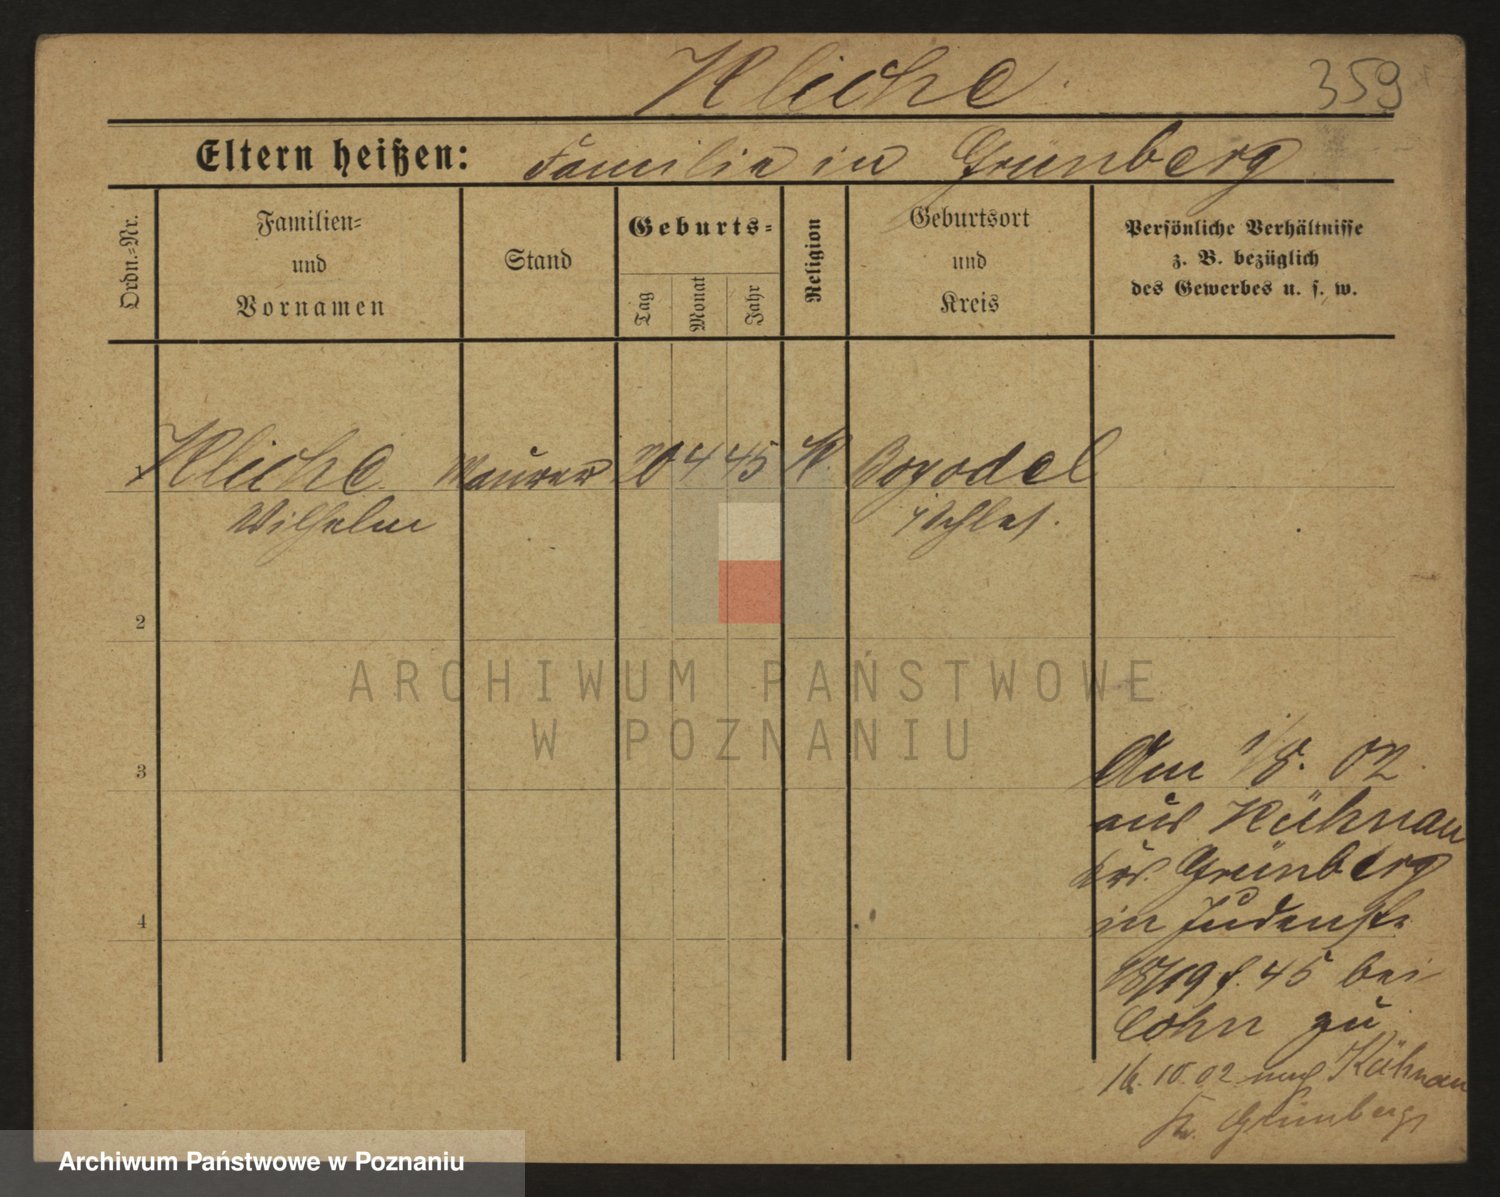 Kliche
359
Eltern heißen: Familie in Grünberg
Ordn.-Nr.
Familien-
und
Vornamen
Stand
Geburts-
Tag
Monat
Jahr
Religion
Geburtsort
und
Kreis
Persönliche Verhältnisse
z. B. bezüglich
des Gewerbes u. s. w.
1 Kliche Maurer 20 4 45 K. Boyadel
Wilhelm i/Schles.
2
3
4
Am 1/8. 02.
aus Kühnau
Krs. Grünberg
in Judenstr.
18/19 f. 45 bei
Cohn zu
16. 10. 02 nach Kühnau
Kr. Grünberg
ARCHIWUM PAŃSTWOWE
W POZNANIU
Archiwum Państwowe w Poznaniu